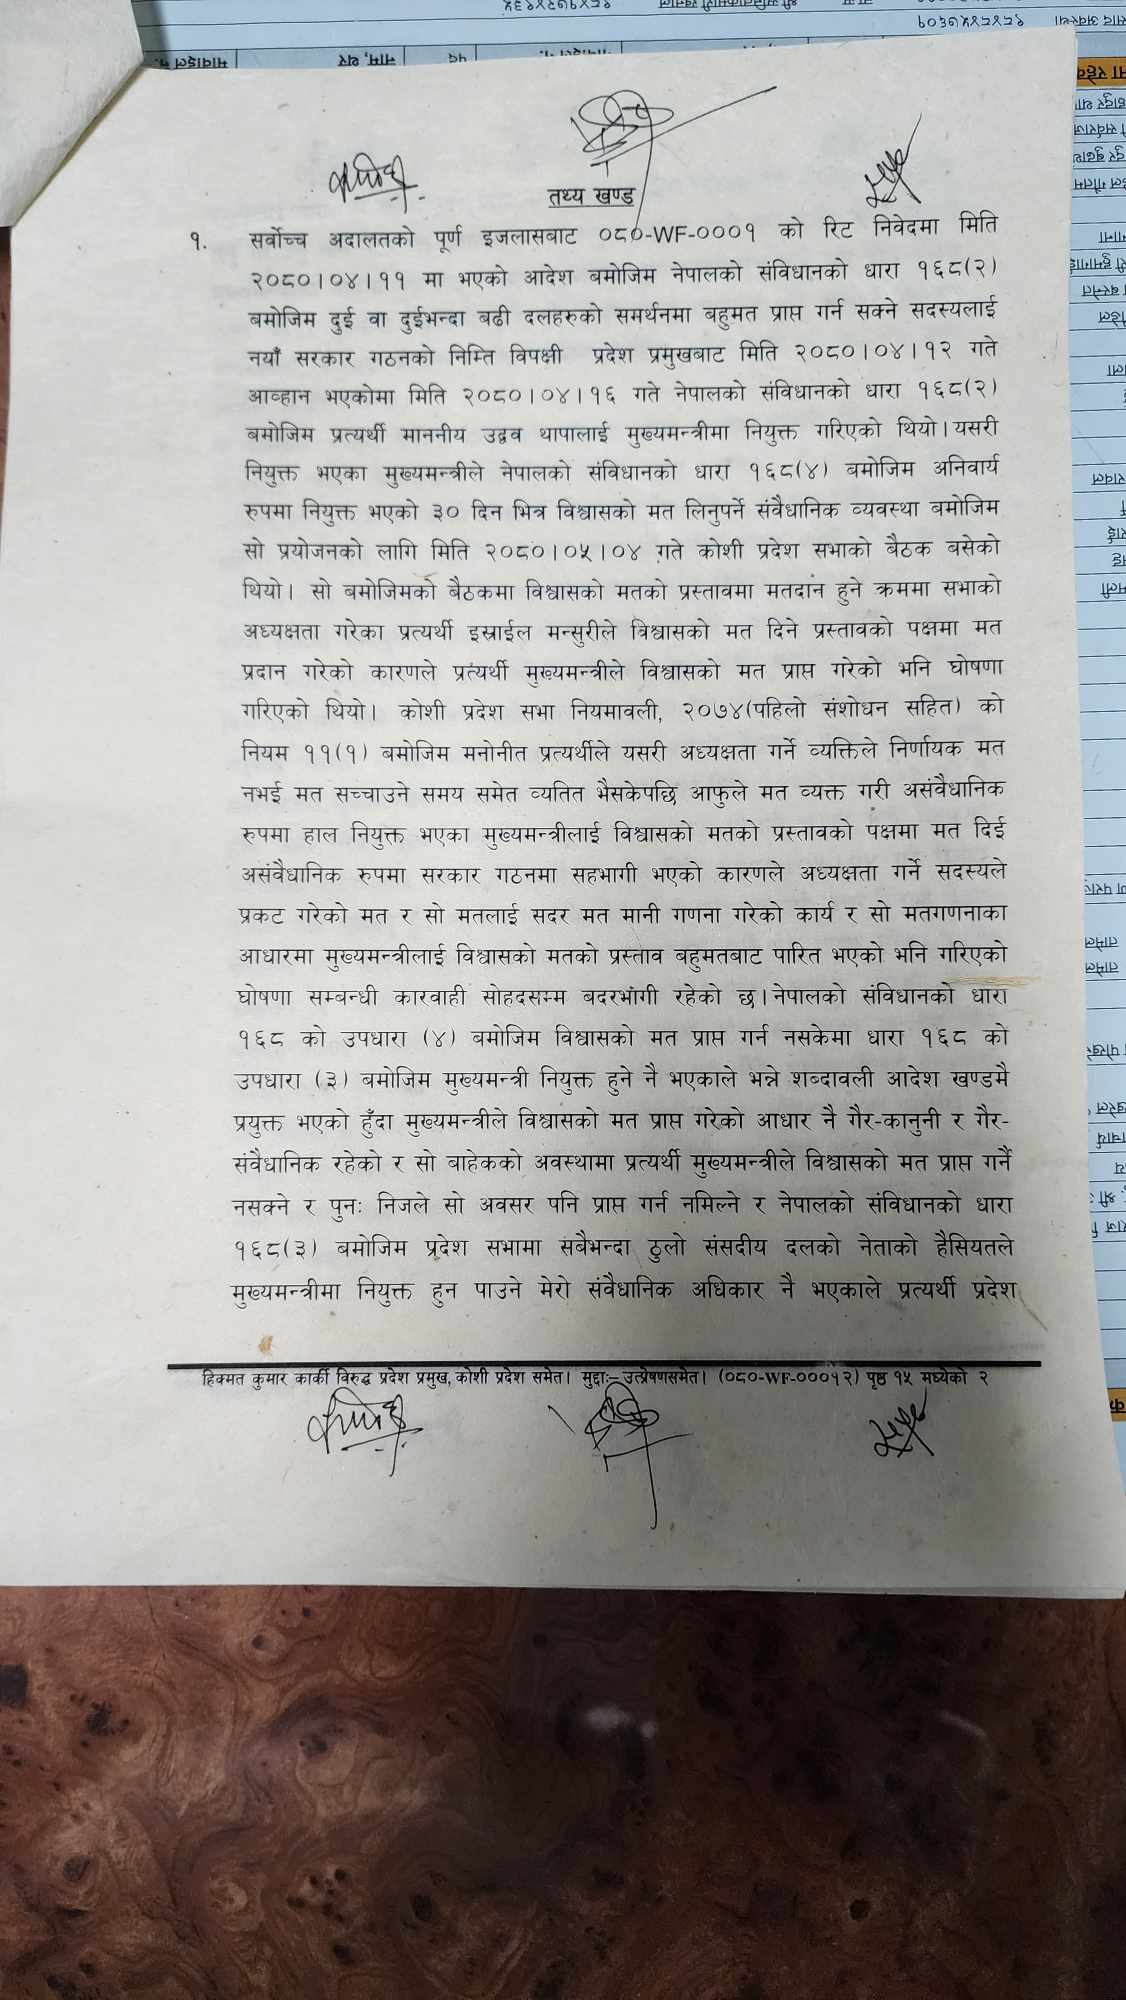 तथ्य खण्ड
१. सर्वोच्च अदालतको पूर्ण इजलासबाट ०८०-WF-०००१ को रिट निवेदमा मिति
२०८०।०४।११ मा भएको आदेश बमोजिम नेपालको संविधानको धारा १६८(२)
बमोजिम दुई वा दुईभन्दा बढी दलहरुको समर्थनमा बहुमत प्राप्त गर्न सक्ने सदस्यलाई
नयाँ सरकार गठनको निम्ति विपक्षी प्रदेश प्रमुखबाट मिति २०८०।०४।१२ गते
आव्हान भएकोमा मिति २०८०।०४।१६ गते नेपालको संविधानको धारा १६८(२)
बमोजिम प्रत्यर्थी माननीय उद्वव थापालाई मुख्यमन्त्रीमा नियुक्त गरिएको थियो।यसरी
नियुक्त भएका मुख्यमन्त्रीले नेपालको संविधानको धारा १६८(४) बमोजिम अनिवार्य
रुपमा नियुक्त भएको ३० दिन भित्र विश्वासको मत लिनुपर्ने संवैधानिक व्यवस्था बमोजिम
सो प्रयोजनको लागि मिति २०८०।०५।०४ गते कोशी प्रदेश सभाको बैठक बसेको
थियो। सो बमोजिमको बैठकमा विश्वासको मतको प्रस्तावमा मतदान हुने क्रममा सभाको
अध्यक्षता गरेका प्रत्यर्थी इस्राईल मन्सुरीले विश्वासको मत दिने प्रस्तावको पक्षमा मत
प्रदान गरेको कारणले प्रत्यर्थी मुख्यमन्त्रीले विश्वासको मत प्राप्त गरेको भनि घोषणा
गरिएको थियो। कोशी प्रदेश सभा नियमावली, २०७४(पहिलो संशोधन सहित) को
नियम ११(१) बमोजिम मनोनीत प्रत्यर्थीले यसरी अध्यक्षता गर्ने व्यक्तिले निर्णायक मत
नभई मत सच्चाउने समय समेत व्यतित भैसकेपछि आफुले मत व्यक्त गरी असंवैधानिक
रुपमा हाल नियुक्त भएका मुख्यमन्त्रीलाई विश्वासको मतको प्रस्तावको पक्षमा मत दिई
असंवैधानिक रुपमा सरकार गठनमा सहभागी भएको कारणले अध्यक्षता गर्ने सदस्यले
प्रकट गरेको मत र सो मतलाई सदर मत मानी गणना गरेको कार्य र सो मतगणनाका
आधारमा मुख्यमन्त्रीलाई विश्वासको मतको प्रस्ताव बहुमतबाट पारित भएको भनि गरिएको
घोषणा सम्बन्धी कारवाही सोहदसम्म बदरभागी रहेको छ।नेपालको संविधानको धारा
१६८ को उपधारा (४) बमोजिम विश्वासको मत प्राप्त गर्न नसकेमा धारा १६८ को
उपधारा (३) बमोजिम मुख्यमन्त्री नियुक्त हुने नै भएकाले भन्ने शब्दावली आदेश खण्डमै
प्रयुक्त भएको हुँदा मुख्यमन्त्रीले विश्वासको मत प्राप्त गरेको आधार नै गैर-कानुनी र गैर-
संवैधानिक रहेको र सो बाहेकको अवस्थामा प्रत्यर्थी मुख्यमन्त्रीले विश्वासको मत प्राप्त गर्नै
नसक्ने र पुनः निजले सो अवसर पनि प्राप्त गर्न नमिल्ने र नेपालको संविधानको धारा
१६८(३) बमोजिम प्रदेश सभामा सबैभन्दा ठुलो संसदीय दलको नेताको हैसियतले
मुख्यमन्त्रीमा नियुक्त हुन पाउने मेरो संवैधानिक अधिकार नै भएकाले प्रत्यर्थी प्रदेश
हिक्मत कुमार कार्की विरुद्ध प्रदेश प्रमुख, कोशी प्रदेश समेत। मुद्दाः–उत्प्रेषणसमेत। (०८०-WF-००१२) पृष्ठ १५ मध्येको २